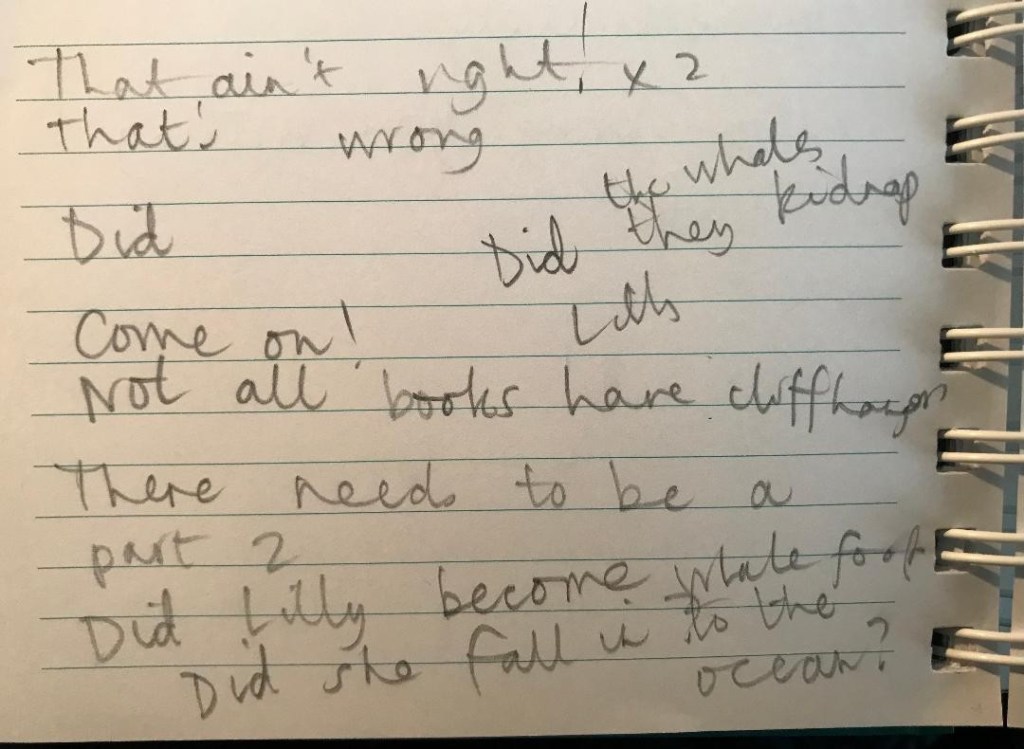 That ain't right! x 2
that's wrong
Did
the whales
Did they kidnap
Lilly
Come on!
Not all books have cliffhangers
There needs to be a
part 2
Did Lilly become whale food
Did she fall in to the
ocean?